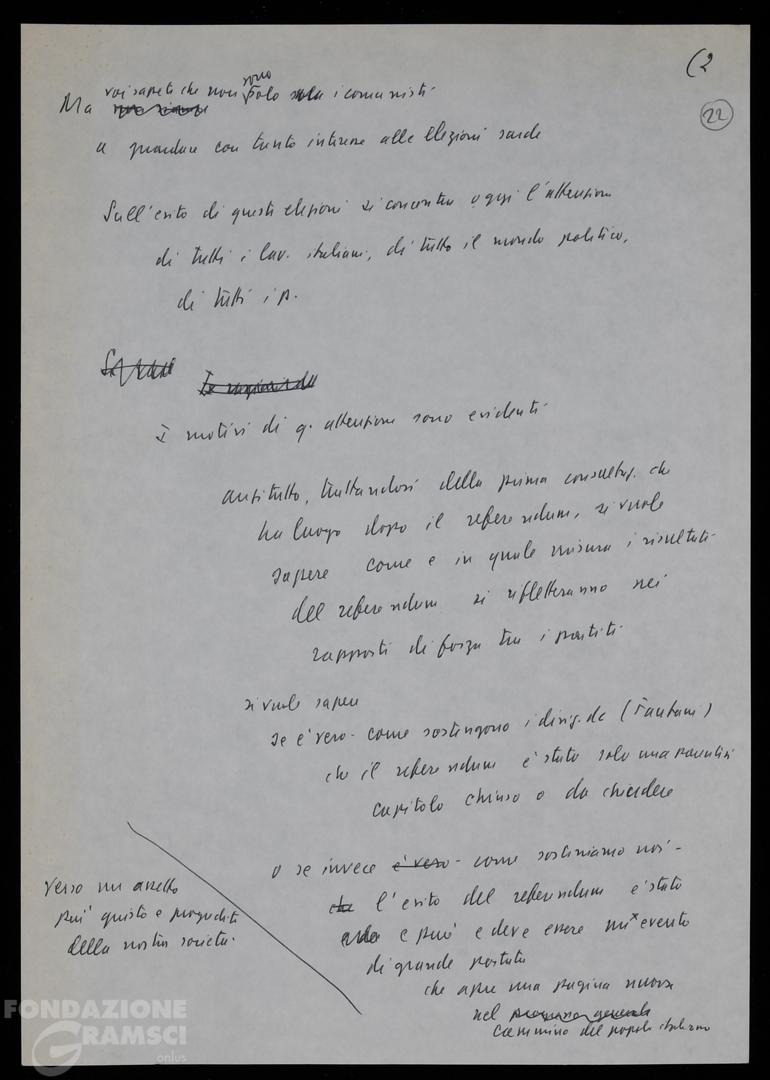 (2
22
Ma voi sapete che non sono solo i comunisti
a guardare con tanto interesse alle elezioni sarde
Sull'esito di queste elezioni si concentra oggi l'attenzione
di tutti i lav. italiani, di tutto il mondo politico,
di tutti i p.
I motivi di q. attenzione sono evidenti
anzitutto, trattandosi della prima consultaz. che
ha luogo dopo il referendum, si vuole
sapere come e in quale misura i risultati
del referendum si rifletteranno nei
rapporti di forza tra i partiti
si vuole sapere
se è vero - come sostengono i dirig. dc (Fanfani)
che il referendum è stato solo una parentesi
capitolo chiuso o da chiudere
o se invece è vero - come sosteniamo noi -
che l'esito del referendum è stato
e può e deve essere un x evento
di grande portata
che apre una pagina nuova
nel
cammino del popolo italiano
verso un assetto
più giusto e progredito
della nostra società.
FONDAZIONE
GRAMSCI
onlus